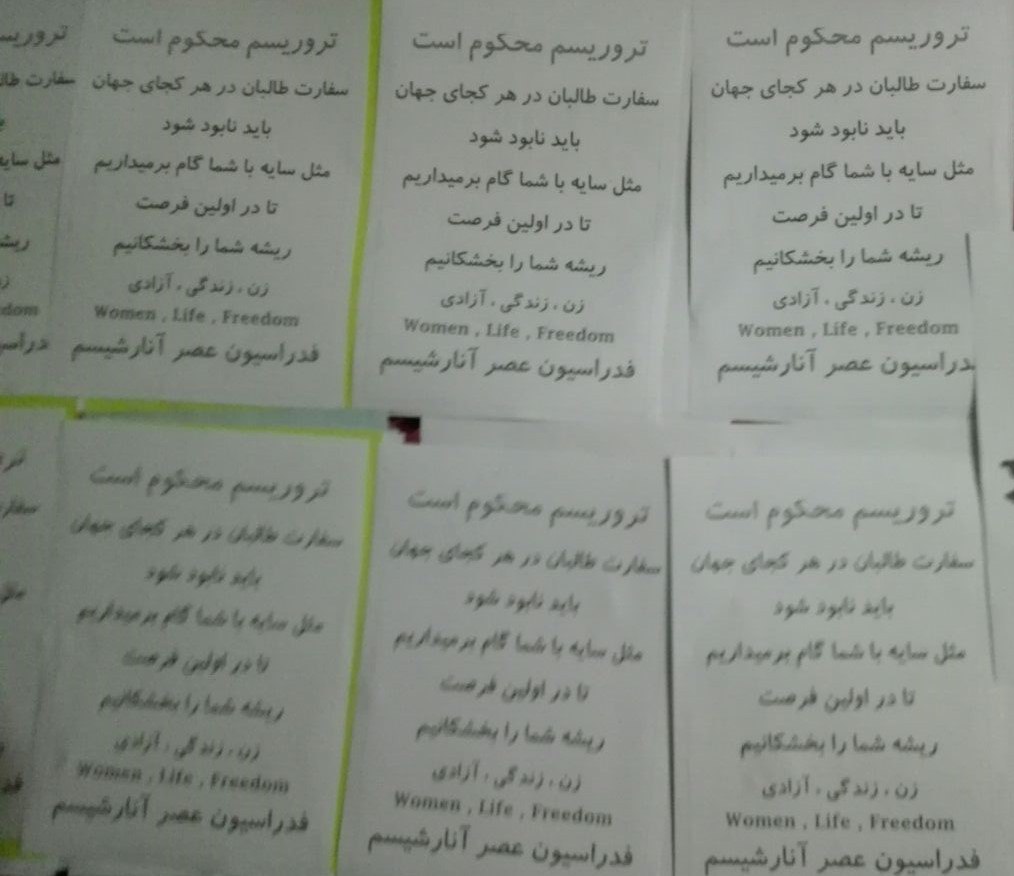 تروریسم محکوم است
سفارت طالبان در هر کجای جهان
باید نابود شود
مثل سایه با شما گام برمیداریم
تا در اولین فرصت
ریشه شما را بخشکانیم
زن ، زندگی ، آزادی
Women , Life , Freedom
دراسیون عصر آنارشیسم
تروریسم محکوم است
سفارت طالبان در هر کجای جهان
باید نابود شود
مثل سایه با شما گام برمیداریم
تا در اولین فرصت
ریشه شما را بخشکانیم
زن ، زندگی ، آزادی
Women , Life , Freedom
فدراسیون عصر آنارشیسم
تروریسم محکوم است
سفارت طالبان در هر کجای جهان
باید نابود شود
مثل سایه با شما گام برمیداریم
تا در اولین فرصت
ریشه شما را بخشکانیم
زن ، زندگی ، آزادی
Women , Life , Freedom
فدراسیون عصر آنارشیسم
سفارت
مثل سایه
تا
تروریسم محکوم است
سفارت طالبان در هر کجای جهان
باید نابود شود
مثل سایه با شما گام برمیداریم
تا در اولین فرصت
ریشه شما را بخشکانیم
زن ، زندگی ، آزادی
Women , Life , Freedom
فدراسیون عصر آنارشیسم
تروریسم محکوم است
سفارت طالبان در هر کجای جهان
باید نابود شود
مثل سایه با شما گام برمیداریم
تا در اولین فرصت
ریشه شما را بخشکانیم
زن ، زندگی ، آزادی
Women , Life , Freedom
فدراسیون عصر آنارشیسم
تروریسم محکوم است
سفارت طالبان در هر کجای جهان
باید نابود شود
مثل سایه با شما گام برمیداریم
تا در اولین فرصت
ریشه شما را بخشکانیم
زن ، زندگی ، آزادی
Women , Life , Freedom
فدراسیون عصر آنارشیسم